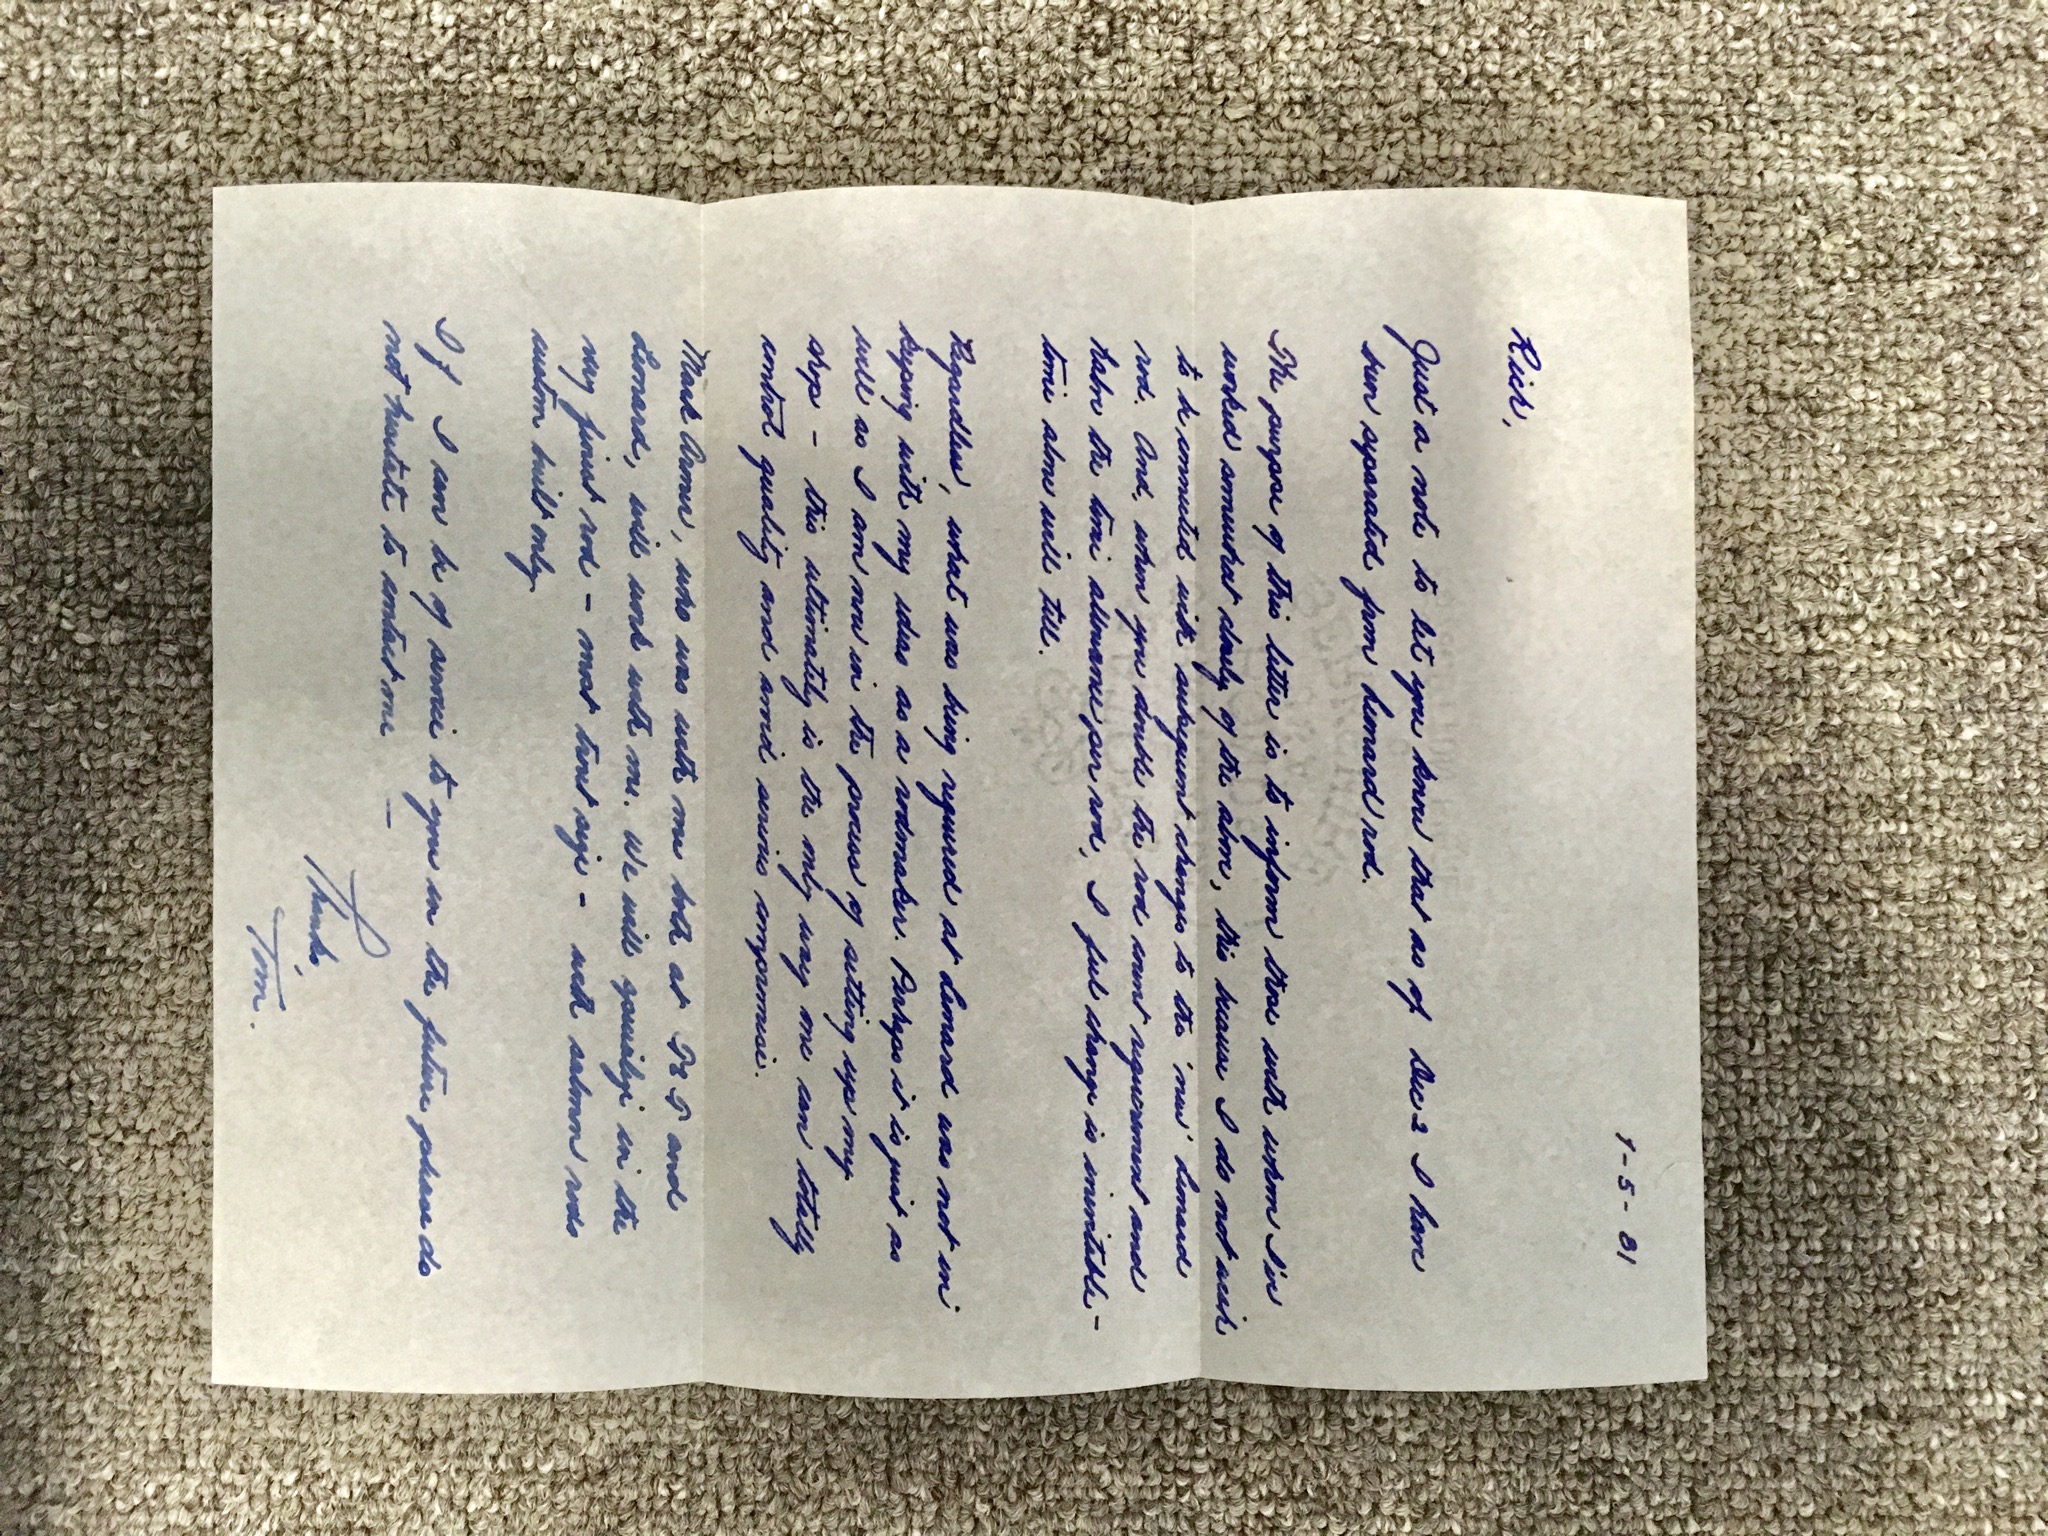 1-5-81
Rich,
Just a note to let you know that as of Dec 2 I have
been separated from Leonard rod.
The purpose of this letter is to inform those with whom I've
worked somewhat closely of the above, this because I do not wish
to be connected with subsequent changes to the 'new' Leonard
rod. And, when you double the rod count requirement and
halve the time allowance per rod, I feel change is inevitable -
time alone will tell.
Regardless, what was being required at Leonard was not in
keeping with my ideas as a rodmaker. Perhaps it is just as
well as I am now in the process of setting up my
shop - this ultimately is the only way one can totally
control quality and avoid serious compromise.
Mark Aroner, who was with me both at T & T and
Leonard, will work with me. We will specialize in the
very finest rod - most trout size - with salmon rods
custom built only.
If I can be of service to you in the future please do
not hesitate to contact me —
Thanks,
Tom.